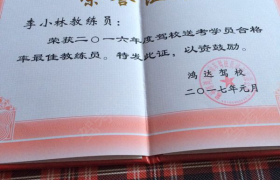 李小林教练员：
荣获二〇一六年度驾校送考学员合格
率最佳教练员。特发此证，以资鼓励。
鸿达驾校
二〇一七年元月